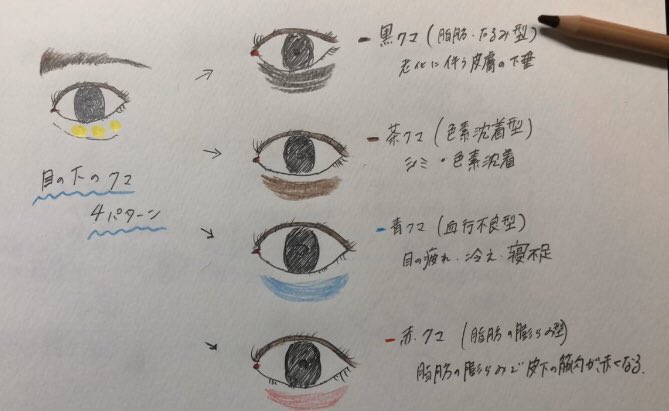 目の下のクマ
4パターン
黒クマ(脂肪・たるみ型)
老化に伴う皮膚の下垂
茶クマ(色素沈着型)
シミ・色素沈着
青クマ(血行不良型)
目の疲れ、冷え、寝不足
赤クマ(脂肪の膨らみ型)
脂肪の膨らみで皮下の筋肉が赤くなる。